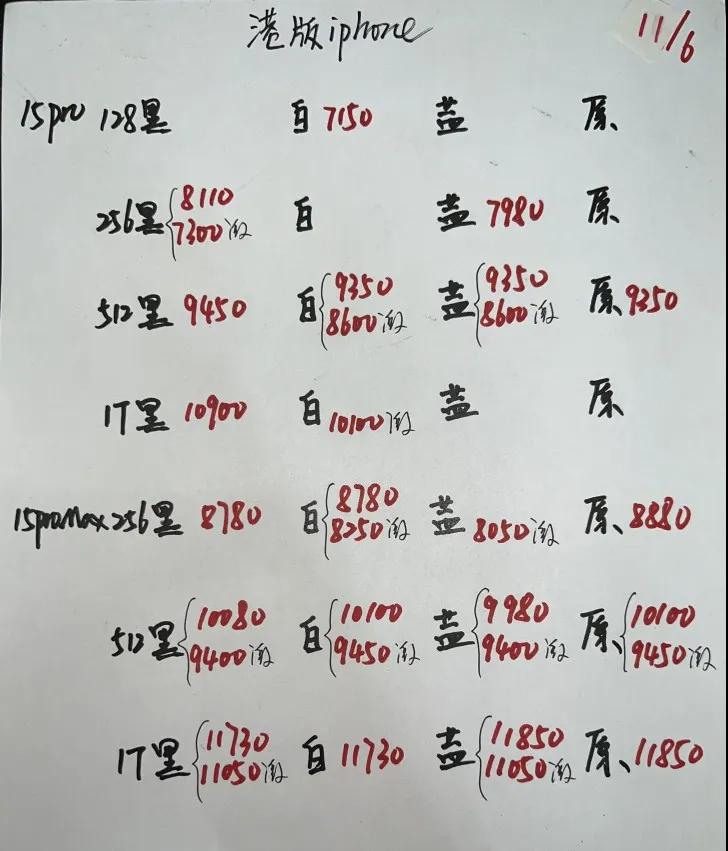 港版iphone 11/6
15pro 128黑 白7150 蓝 原、
256黑 8110 7300激 白 蓝 7980 原、
512黑 9450 白 9350 8600激 蓝 9350 8600激 原、9350
1T黑 10900 白 10100激 蓝 原、
15proMax 256黑 8780 白 8780 8250激 蓝 8050激 原、8880
512黑 10080 9400激 白 10100 9450激 蓝 9980 9400激 原、10100 9450激
1T黑 11730 11050激 白 11730 蓝 11850 11050激 原、11850